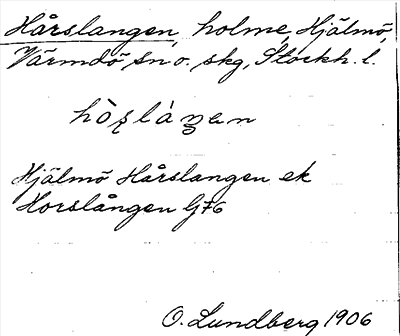 Hårslangen, holme, Hjälmö,
Värmdö sn o. skg, Stockh. l.
hò̱ʂlàŋan
Hjälmö Hårslangen ek
Horslången G76
O. Lundberg 1906